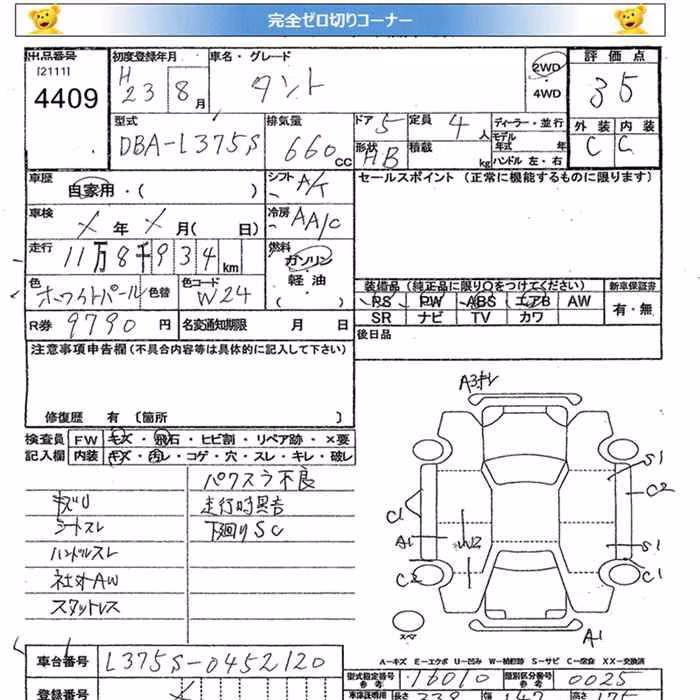 完全ゼロ切りコーナー
出品番号 初度登録年月 車名・グレード 2WD ・ 4WD 評価点
[2111] 4409 H 23 8月 タント 35
型式 排気量 ドア 5 定員 4人 ディーラー・並行 外装 内装
DBA-L375S 660cc 形状 HB 積載 kg モデル年式 年 C C
ハンドル 左・右
車歴 自家用・( ) シフト A/T セールスポイント (正常に機能するものに限ります)
車検 メ年 メ月( 日) 冷房 AA/C
走行 11万8千934km 燃料 ガソリン 軽油 ( )
色 ホワイトパール 色替 色コード W24 装備品 (純正品に限り○をつけてください) 新車保証書
PS PW ABS エアB AW 有・無
R券 9790円 名変通知期限 月 日 SR ナビ TV カワ
注意事項申告欄(不具合内容等は具体的に記入して下さい) 後日品
修復歴 有 [箇所 ]
検査員 FW キズ・飛石・ヒビ割・リペア跡・×要
記入欄 内装 キズ・汚レ・コゲ・穴・スレ・キレ・破レ
パワスラ不良
キズU 走行時異音
シートスレ 下廻りSC
ハンドルスレ
社外AW
スタットレス
A3キレ
S1
C2
C1
A1 W2 S1
C2 C1
スペア A1
A-キズ E-エクボ U-凹み W-補修跡 S-サビ C-腐食 XX-交換済
車台番号 L375S-0452120 型式指定番号 参考 16010 類別区分番号 参考 0025
登録番号 メ 車庫証明用 長さ 339 幅 147 高さ 175